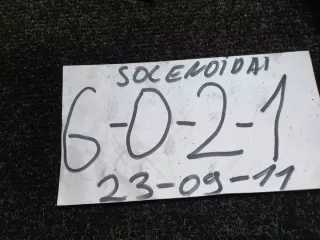 SOLENOIDAI
6-0-2-1
23-09-11